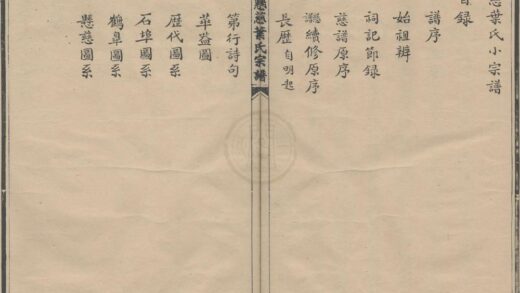 慈葉氏小宗譜
目録
譜序
始祖辨
祠記節録
慈譜原序
續修原序
長歷自明起
懸慈葉氏宗譜
第行詩句
莊蓋圖
歷代圖系
石埠圖系
鶴皐圖系
懸慈圖系